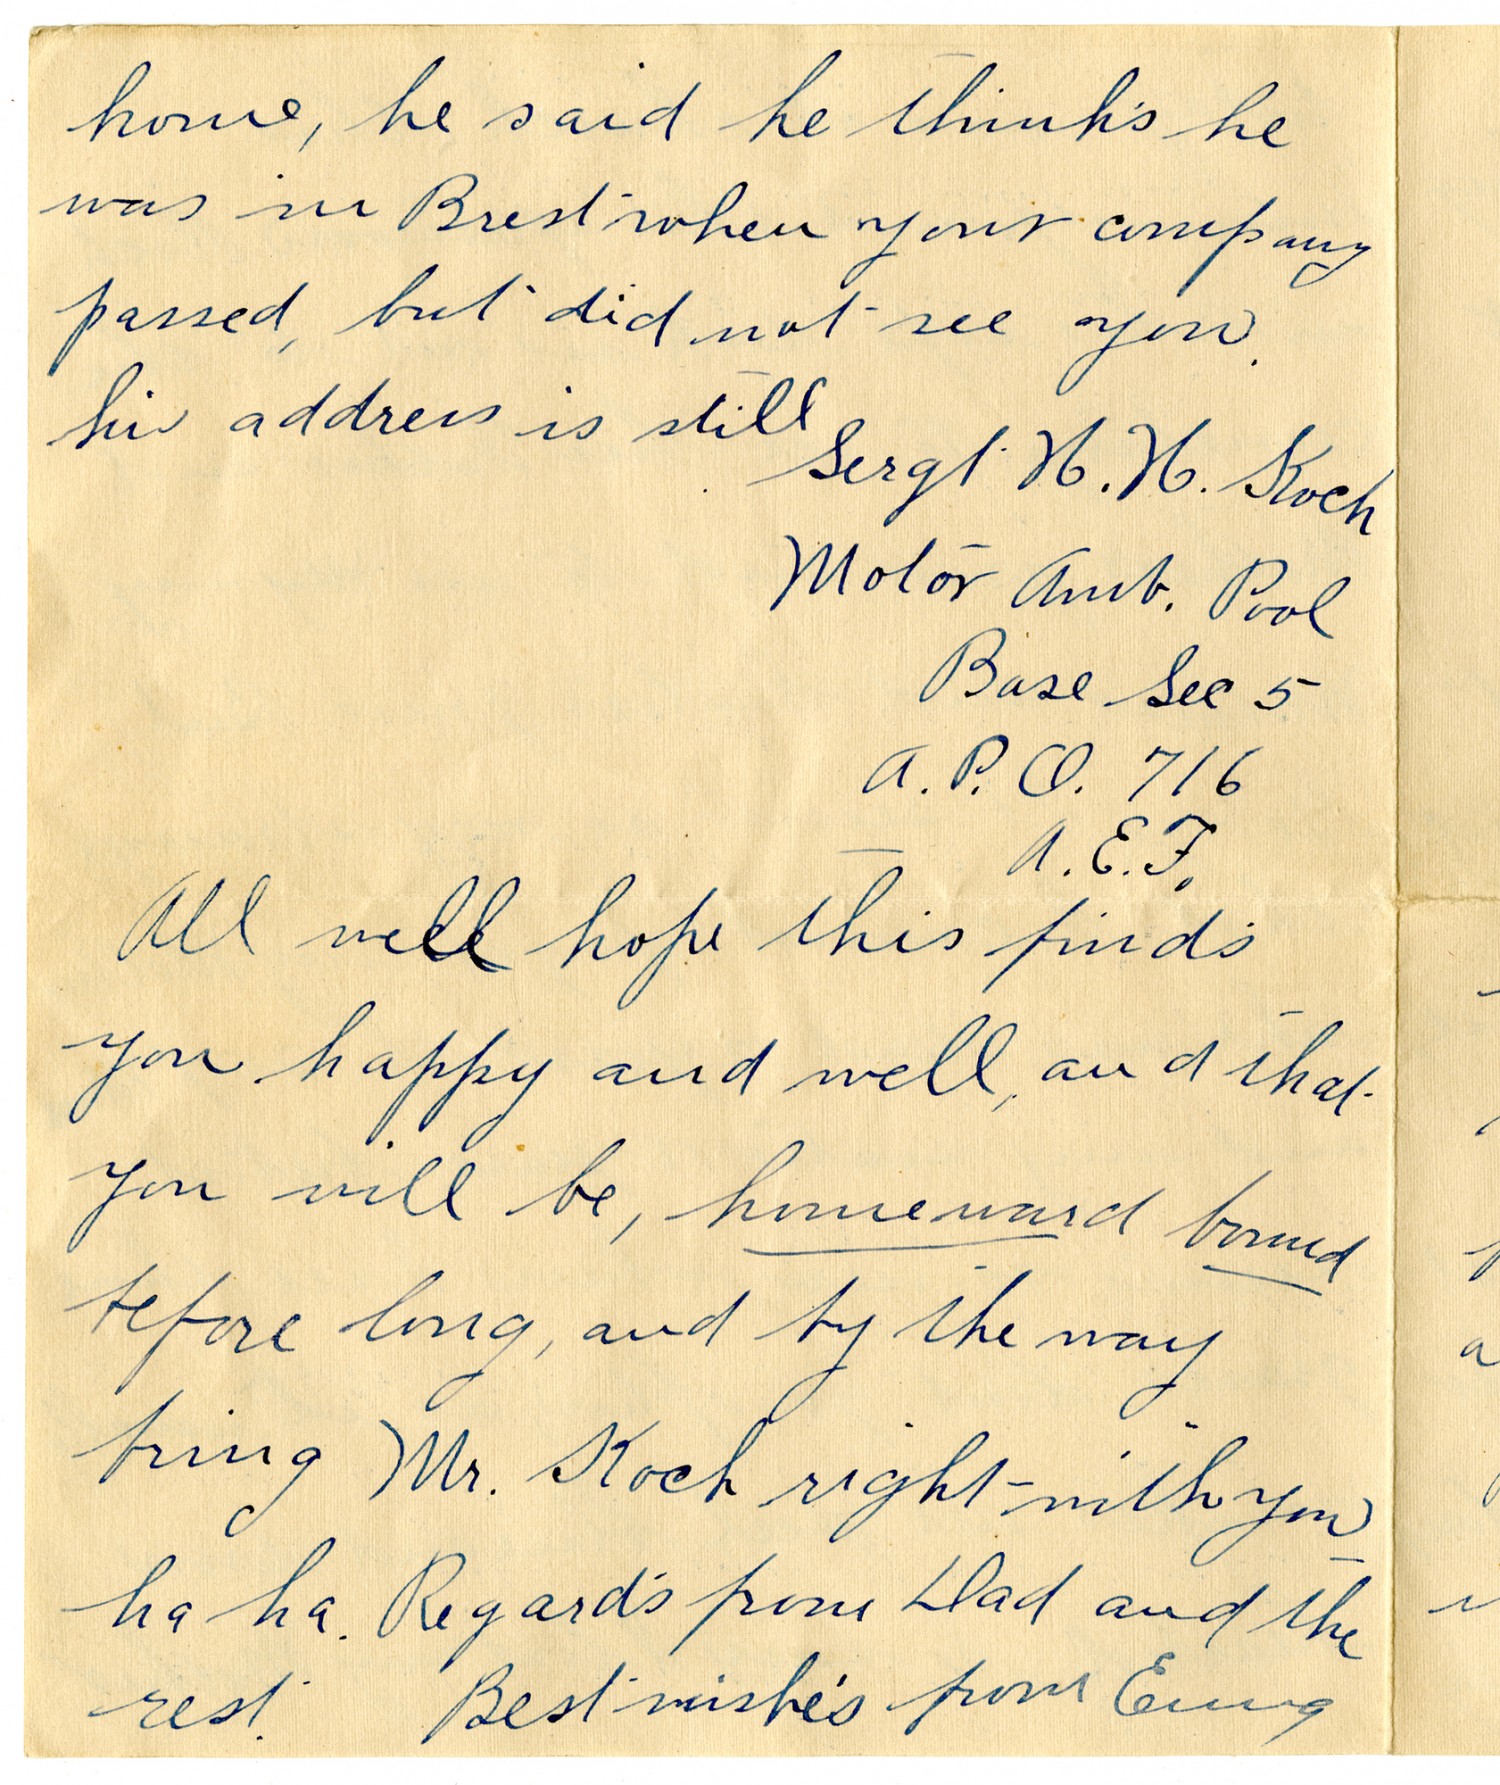 home, he said he think's he
was in Brest when your company
passed, but did not see you.
his address is still
Sergt H. H. Koch
Motor Amb. Pool
Base Sec 5
A. P. O. 716
A. E. F.
All well hope this find's
you happy and well, and that
you will be, homeward bound
before long, and by the way
bring Mr. Koch right with you
ha ha. Regard's from Dad and the
rest. Best wishe's from